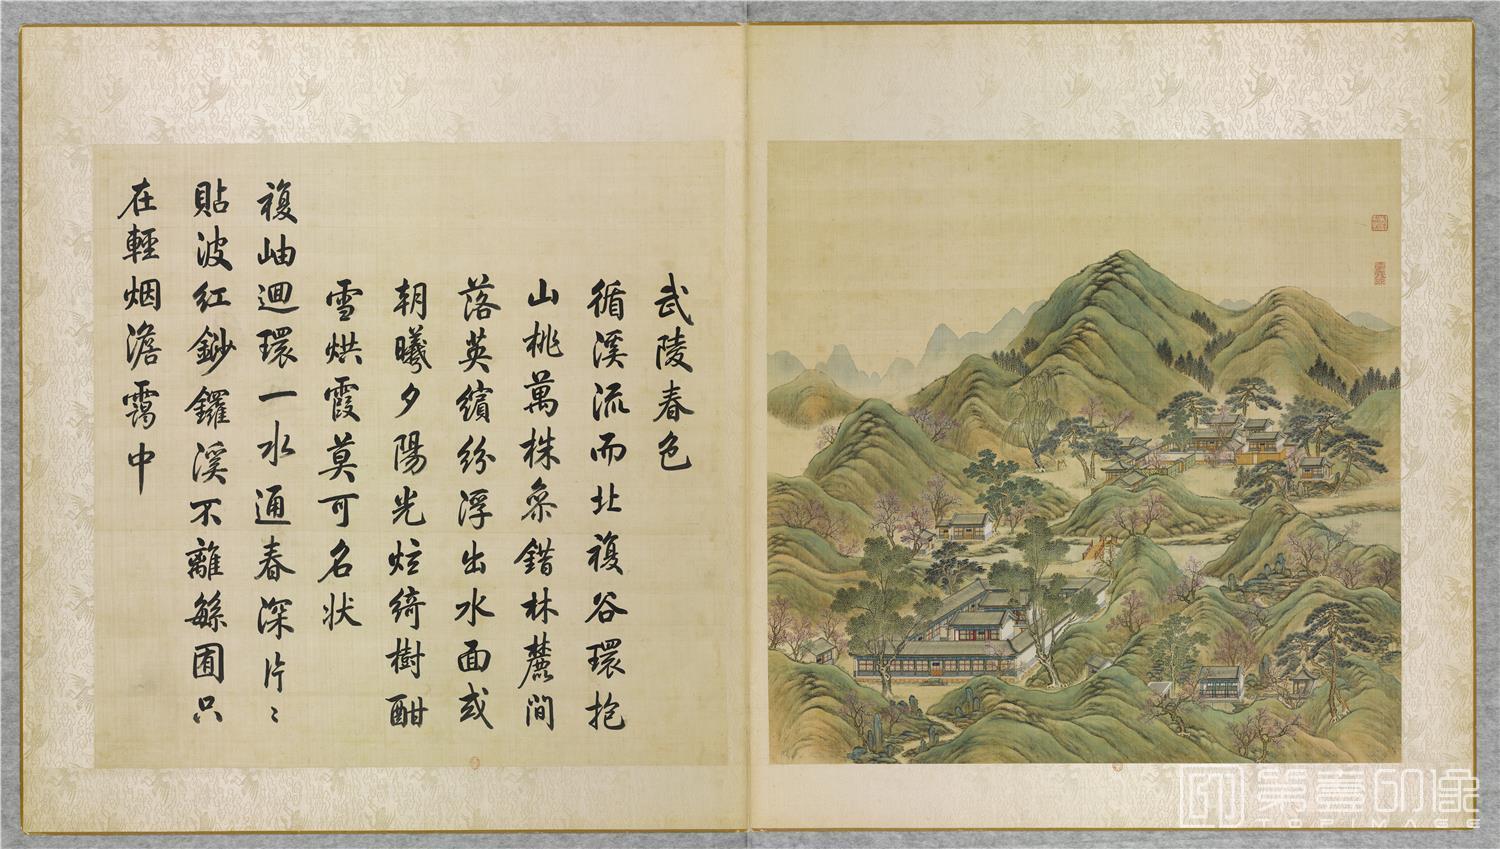 武陵春色
循溪流而北複谷環抱
山桃萬株叅錯林麓間
落英繽紛浮出水面或
朝曦夕陽光炫綺樹酣
雪烘霞莫可名状
複岫迴環一水通春深片〻
貼波紅鈔鑼溪不離囿只
在輕烟澹靄中
第壹印像
TOPIMAGE